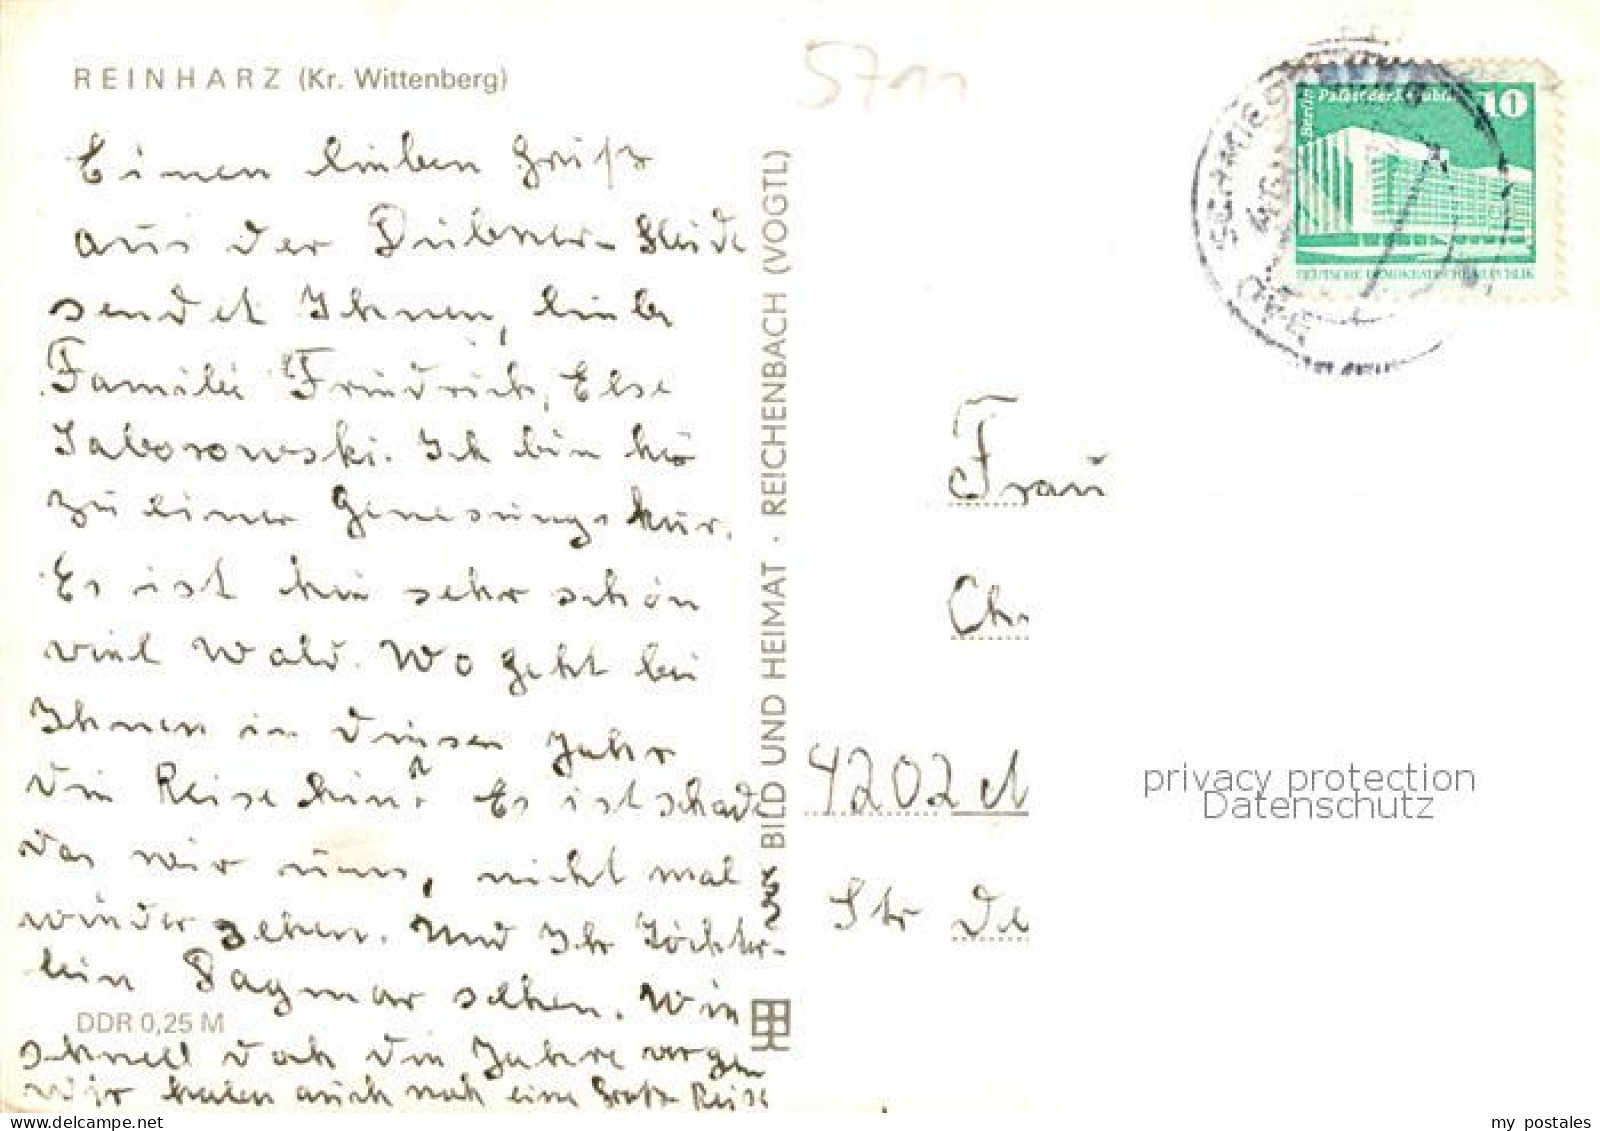 REINHARZ (Kr. Wittenberg)
Einen lieben Gruß
aus der Dübner-Heide
sendet Ihnen, liebe
Familie Friedrich, Else
Saborowski. Ich bin hie
zu einer Genesungskur.
Es ist hie sehr schön
viel Wald. Wo geht bei
Ihnen in diesen Jahr
die Reise hin? Es ist schade
das wir uns, nicht mal
wieder sehen. Und Ihr Töchter-
lein Dagmar sehen. Wie
schnell doch die Jahre vergen
Wir haben auch noch eine Große Reise
DDR 0,25 M
BILD UND HEIMAT · REICHENBACH (VOGTL)
5711
Berlin
Palast der Republik
10
DEUTSCHE DEMOKRATISCHE REPUBLIK
BAD SCHMIEDEBERG
Frau
Ch
4202 M
Str De
privacy protection
Datenschutz
my postales
www.delcampe.net